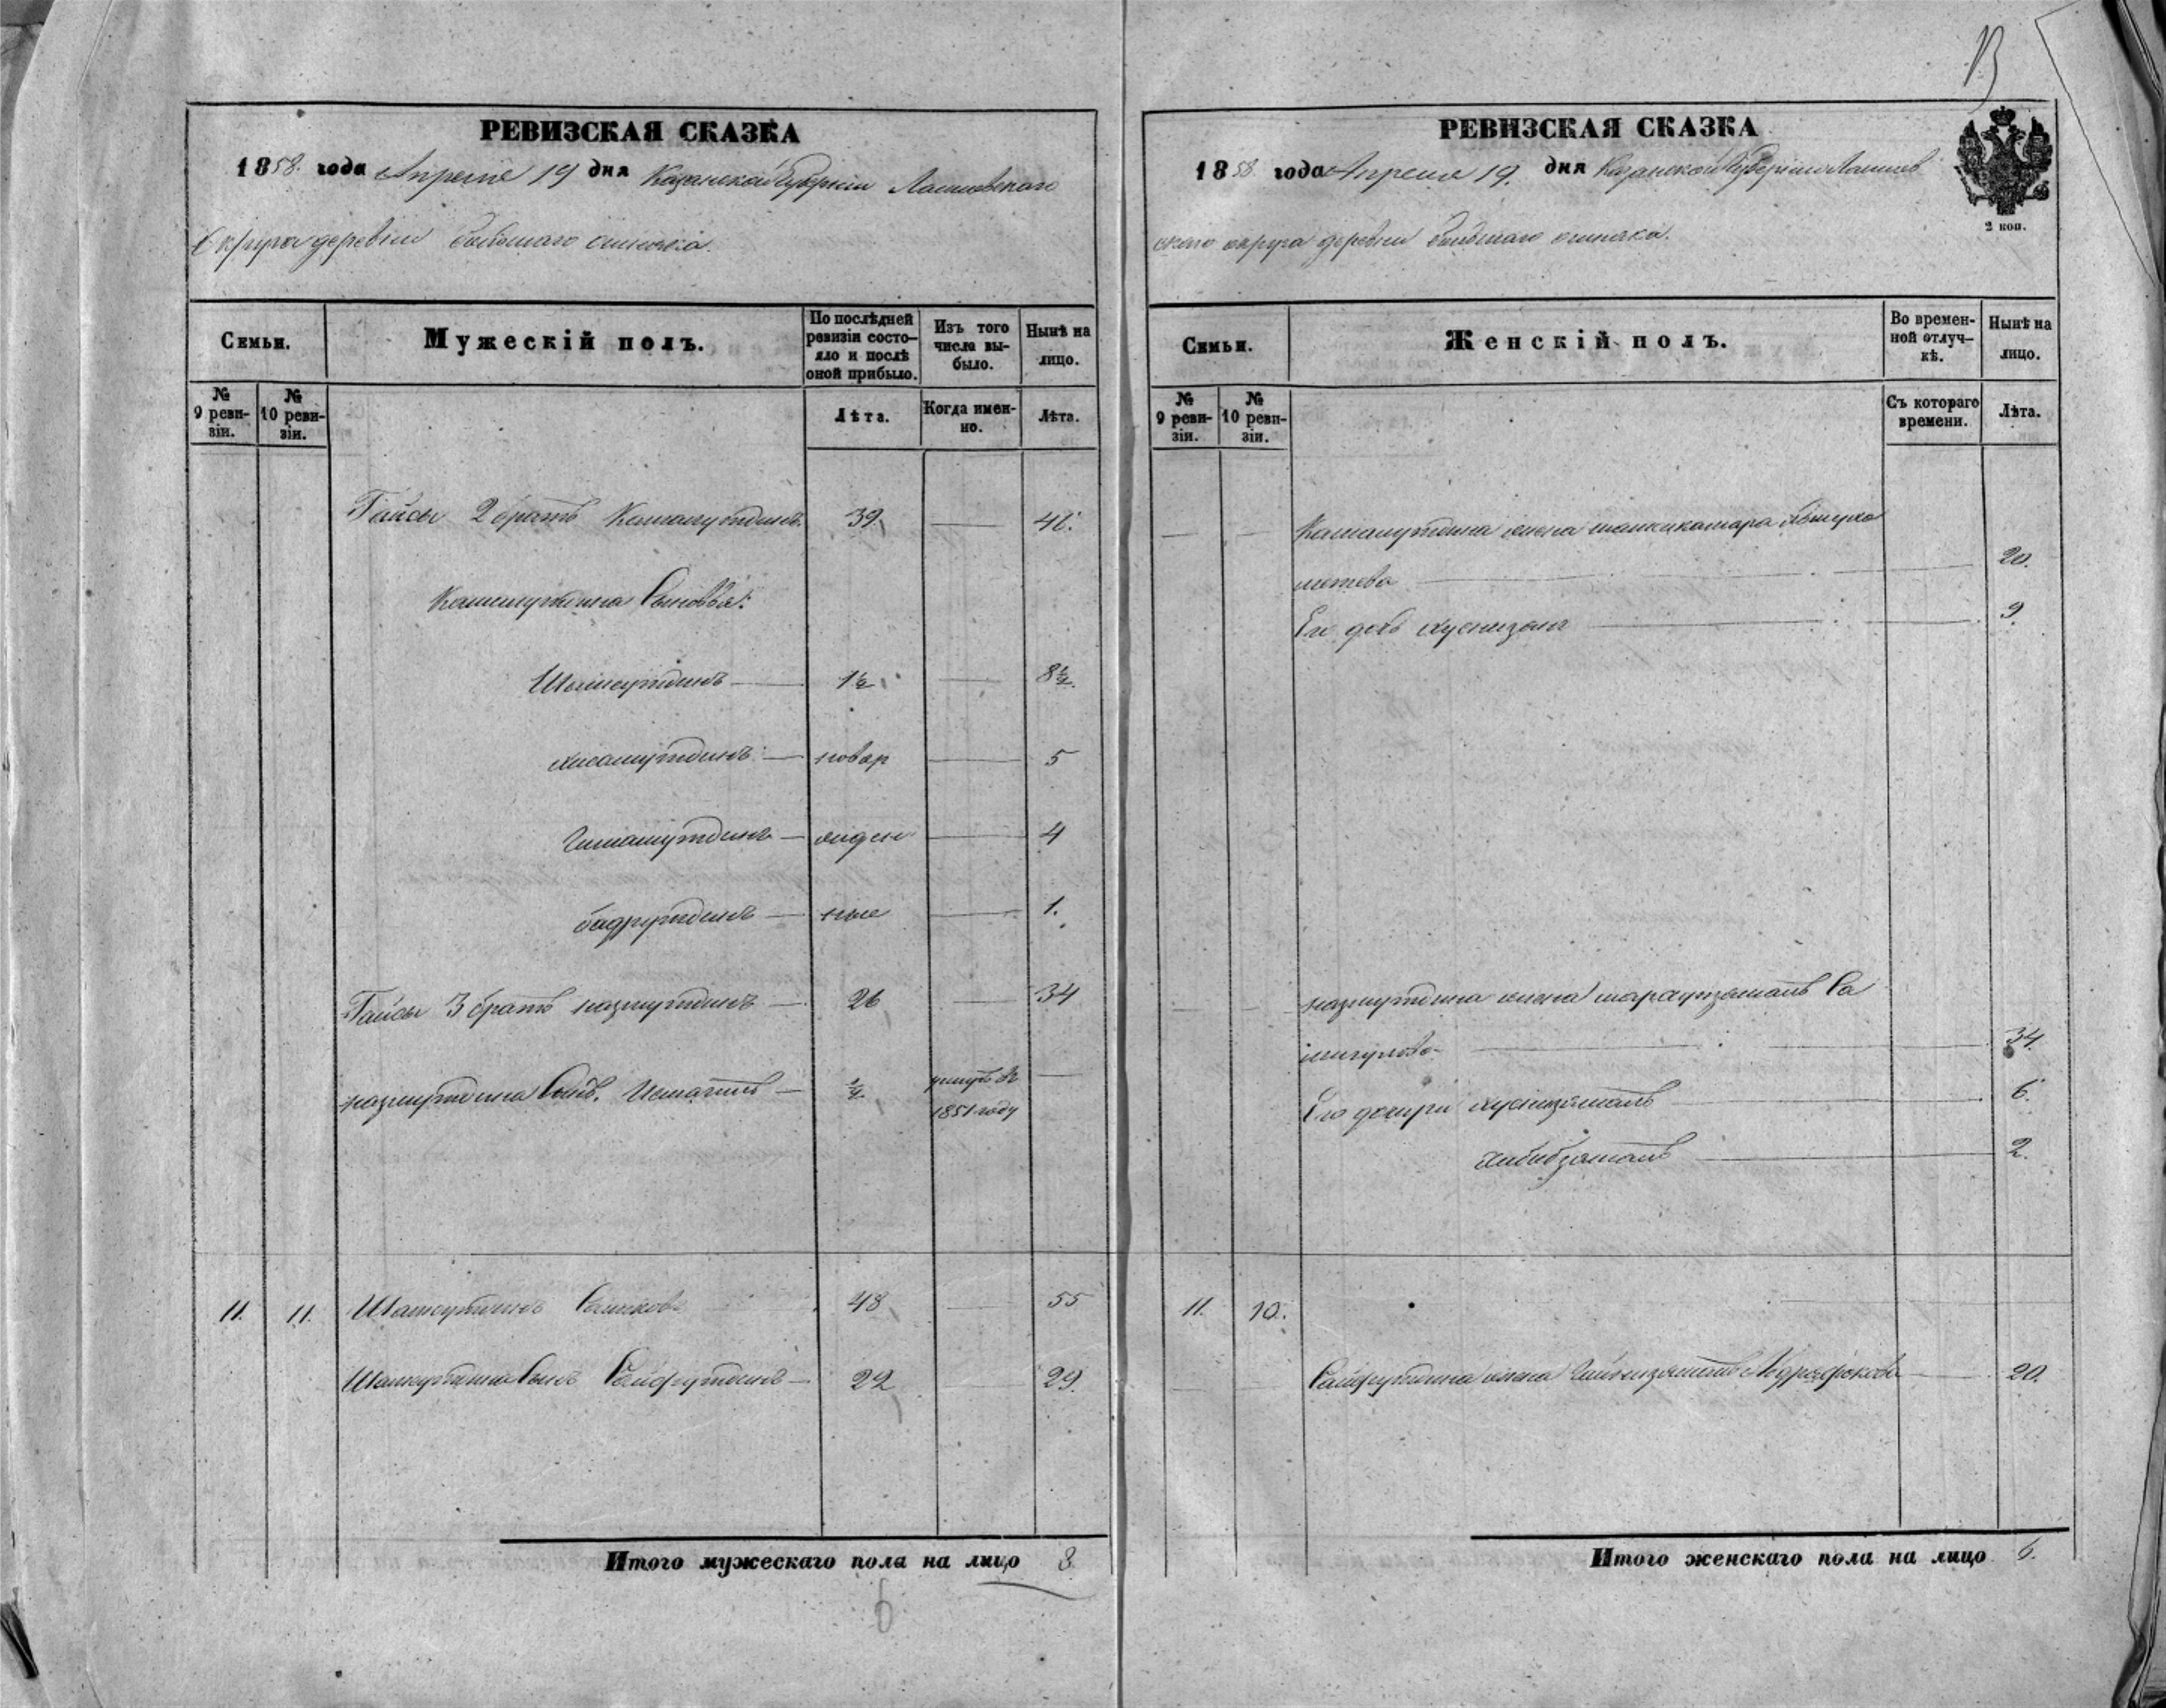 РЕВИЗСКАЯ СКАЗКА
1858. года Апреля 19 дня Казанской Губернии Лаишевскаго
Округа деревни
Семьи.
Мужескій полъ.
По послѣдней ревизіи состояло и послѣ оной прибыло.
Изъ того числа выбыло.
Нынѣ на лицо.
№ 9 ревизіи.
№ 10 ревизіи.
Лѣта.
Когда именно.
Лѣта.
Гайсы 2 братъ Камалутдинъ 39. — 46.
Камалутдина Сыновья:
Шамсутдинъ — 1½ — 8½.
хисамутдинъ — новор — 5
— ожден — 4
бадрутдинъ — ные — 1.
Гайсы 3 братъ назмутдинъ — 26 — 34
назмутдина Сынъ. Исмагилъ — умеръ въ —
1851 году
11. 11. 48 — 55
Сынъ Сайфутдинъ — 22 — 29.
Итого мужескаго пола на лицо 8
6
РЕВИЗСКАЯ СКАЗКА
1858 года Апреля 19. дня Казанской Губернии Лаишев
скаго округа деревни
2 коп.
Семьи.
Женскій полъ.
Во временной отлучкѣ.
Нынѣ на лицо.
№ 9 ревизіи.
№ 10 ревизіи.
Съ котораго времени.
Лѣта.
Камалутдина жена
метева — 20.
Его дочь — 9.
назмутдина жена Са
— 34.
Его дочери хуснизямалъ — 6.
хабибзямалъ — 2.
11. 10.
Сайфутдина жена — 20.
Итого женскаго пола на лицо 6.